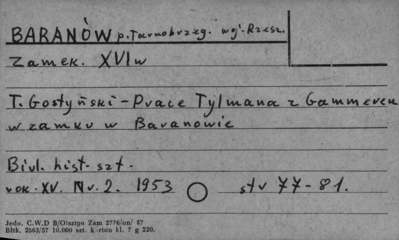 BARANÓW p. Tarnobrzeg. woj. Rzesz.
Zamek. XVI w
T. Gostyński - Prace Tylmana z Gammeren
w zamku w Baranowie
Biul. hist. szt.
rok. XV. Nr. 2. 1953 str 77-81.
Jedn. C.W.D B/Olsztyn Zam 2776/on/ 57
Bltk. 2563/57 10.000 szt. karton kl. 7 g 220.